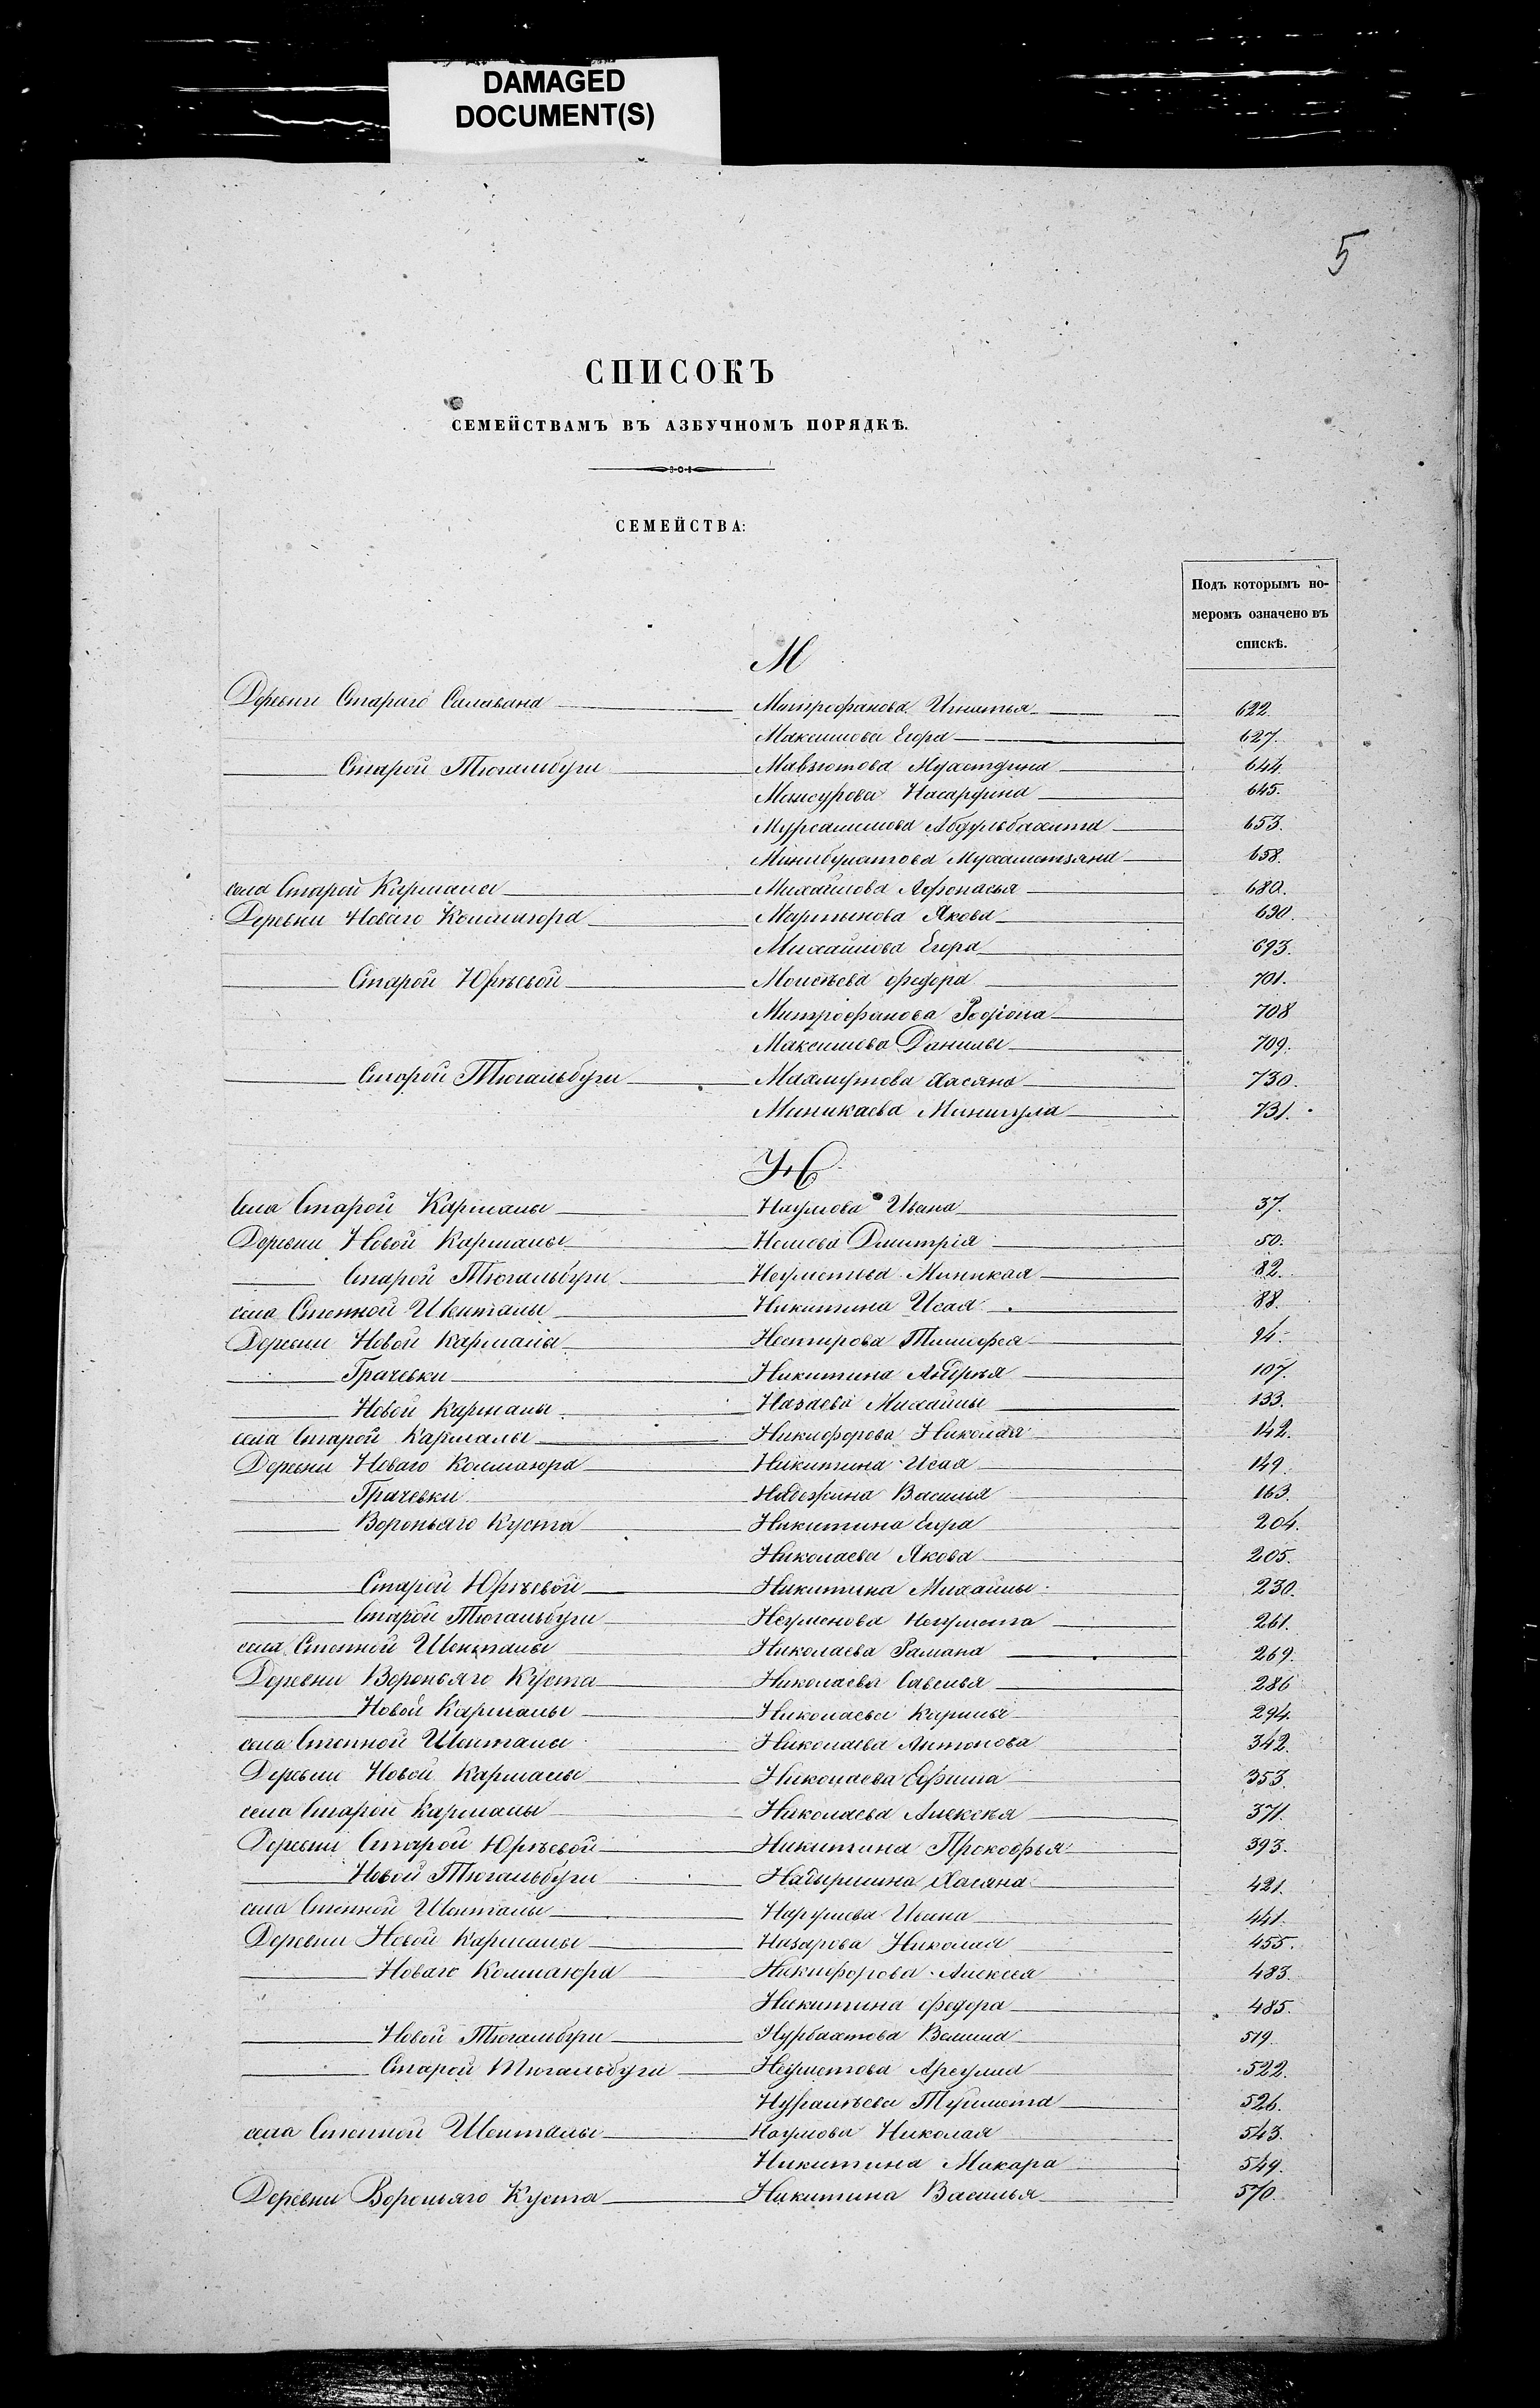 DAMAGED
DOCUMENT(S)
5
СПИСОКЪ
СЕМЕЙСТВАМЪ ВЪ АЗБУЧНОМЪ ПОРЯДКѢ.
СЕМЕЙСТВА:
Подъ которымъ но-
меромъ означено въ
спискѣ.
М
Деревни Стараго Салавана Митрофанова Игнатья 622.
Максимова Егора 627.
Старой Тюгальбуги Мавзютова 644.
Мансурова 645.
653.
Мухаметзяна 658.
села Старой Кармалы Михайлова Афонасья 680.
Деревни Новаго Колмаюра Мартынова Якова 690.
Михайлова Егора 693.
Старой Юрѣевой Моисѣева Федора 701.
Митрофанова Родіона 708
Максимова Данилы 709.
Старой Тюгальбуги Махмутова Хасяна 730.
Миникаева Минигула 731.
Н
Села Старой Кармалы Наумова Ивана 37.
Деревни Новой Кармалы Дмитрія 50.
Старой Тюгальбуги Миникая 82.
села Степной Шенталы Никитина Исая 88.
Деревни Новой Кармалы Нестирова Тимофея 94.
Грачевки Никитина Андрѣя 107.
Новой Кармалы Михайлы 133.
села Старой Кармалы Никифорова Николая 142.
Деревни Новаго Колмаюра Никитина Исая 149.
Грачевки Надежина Василья 163.
Вороньяго Куста Никитина Егора 204.
Николаева Якова 205.
Старой Юрѣевой Никитина Михайлы 230.
Старой Тюгальбуги 261.
села Степной Шенталы Николаева Рамана 269.
Деревни Вороньяго Куста Николаева Савелья 286
Новой Кармалы Николаева Карпила 294.
села Степной Шенталы Николаева Антонова 342.
Деревни Новой Кармалы Николаева Ефима 353.
села Старой Кармалы Николаева Алексѣя 371.
Деревни Старой Юрѣевой Никитина Прокофья 393.
Новой Тюгальбуги Надыршина Хасяна 421.
села Степной Шенталы Ивана 441.
Деревни Новой Кармалы Назарова Николая 455.
Новаго Колмаюра Никифорова Алексея 483.
Никитина Федора 485.
Новой Тюгальбуги Нурбахтова 519.
Старой Тюгальбуги 522.
526.
села Степной Шенталы Наумова Николая 543.
Никитина Макара 549.
Деревни Вороньяго Куста Никитина Василья 570.